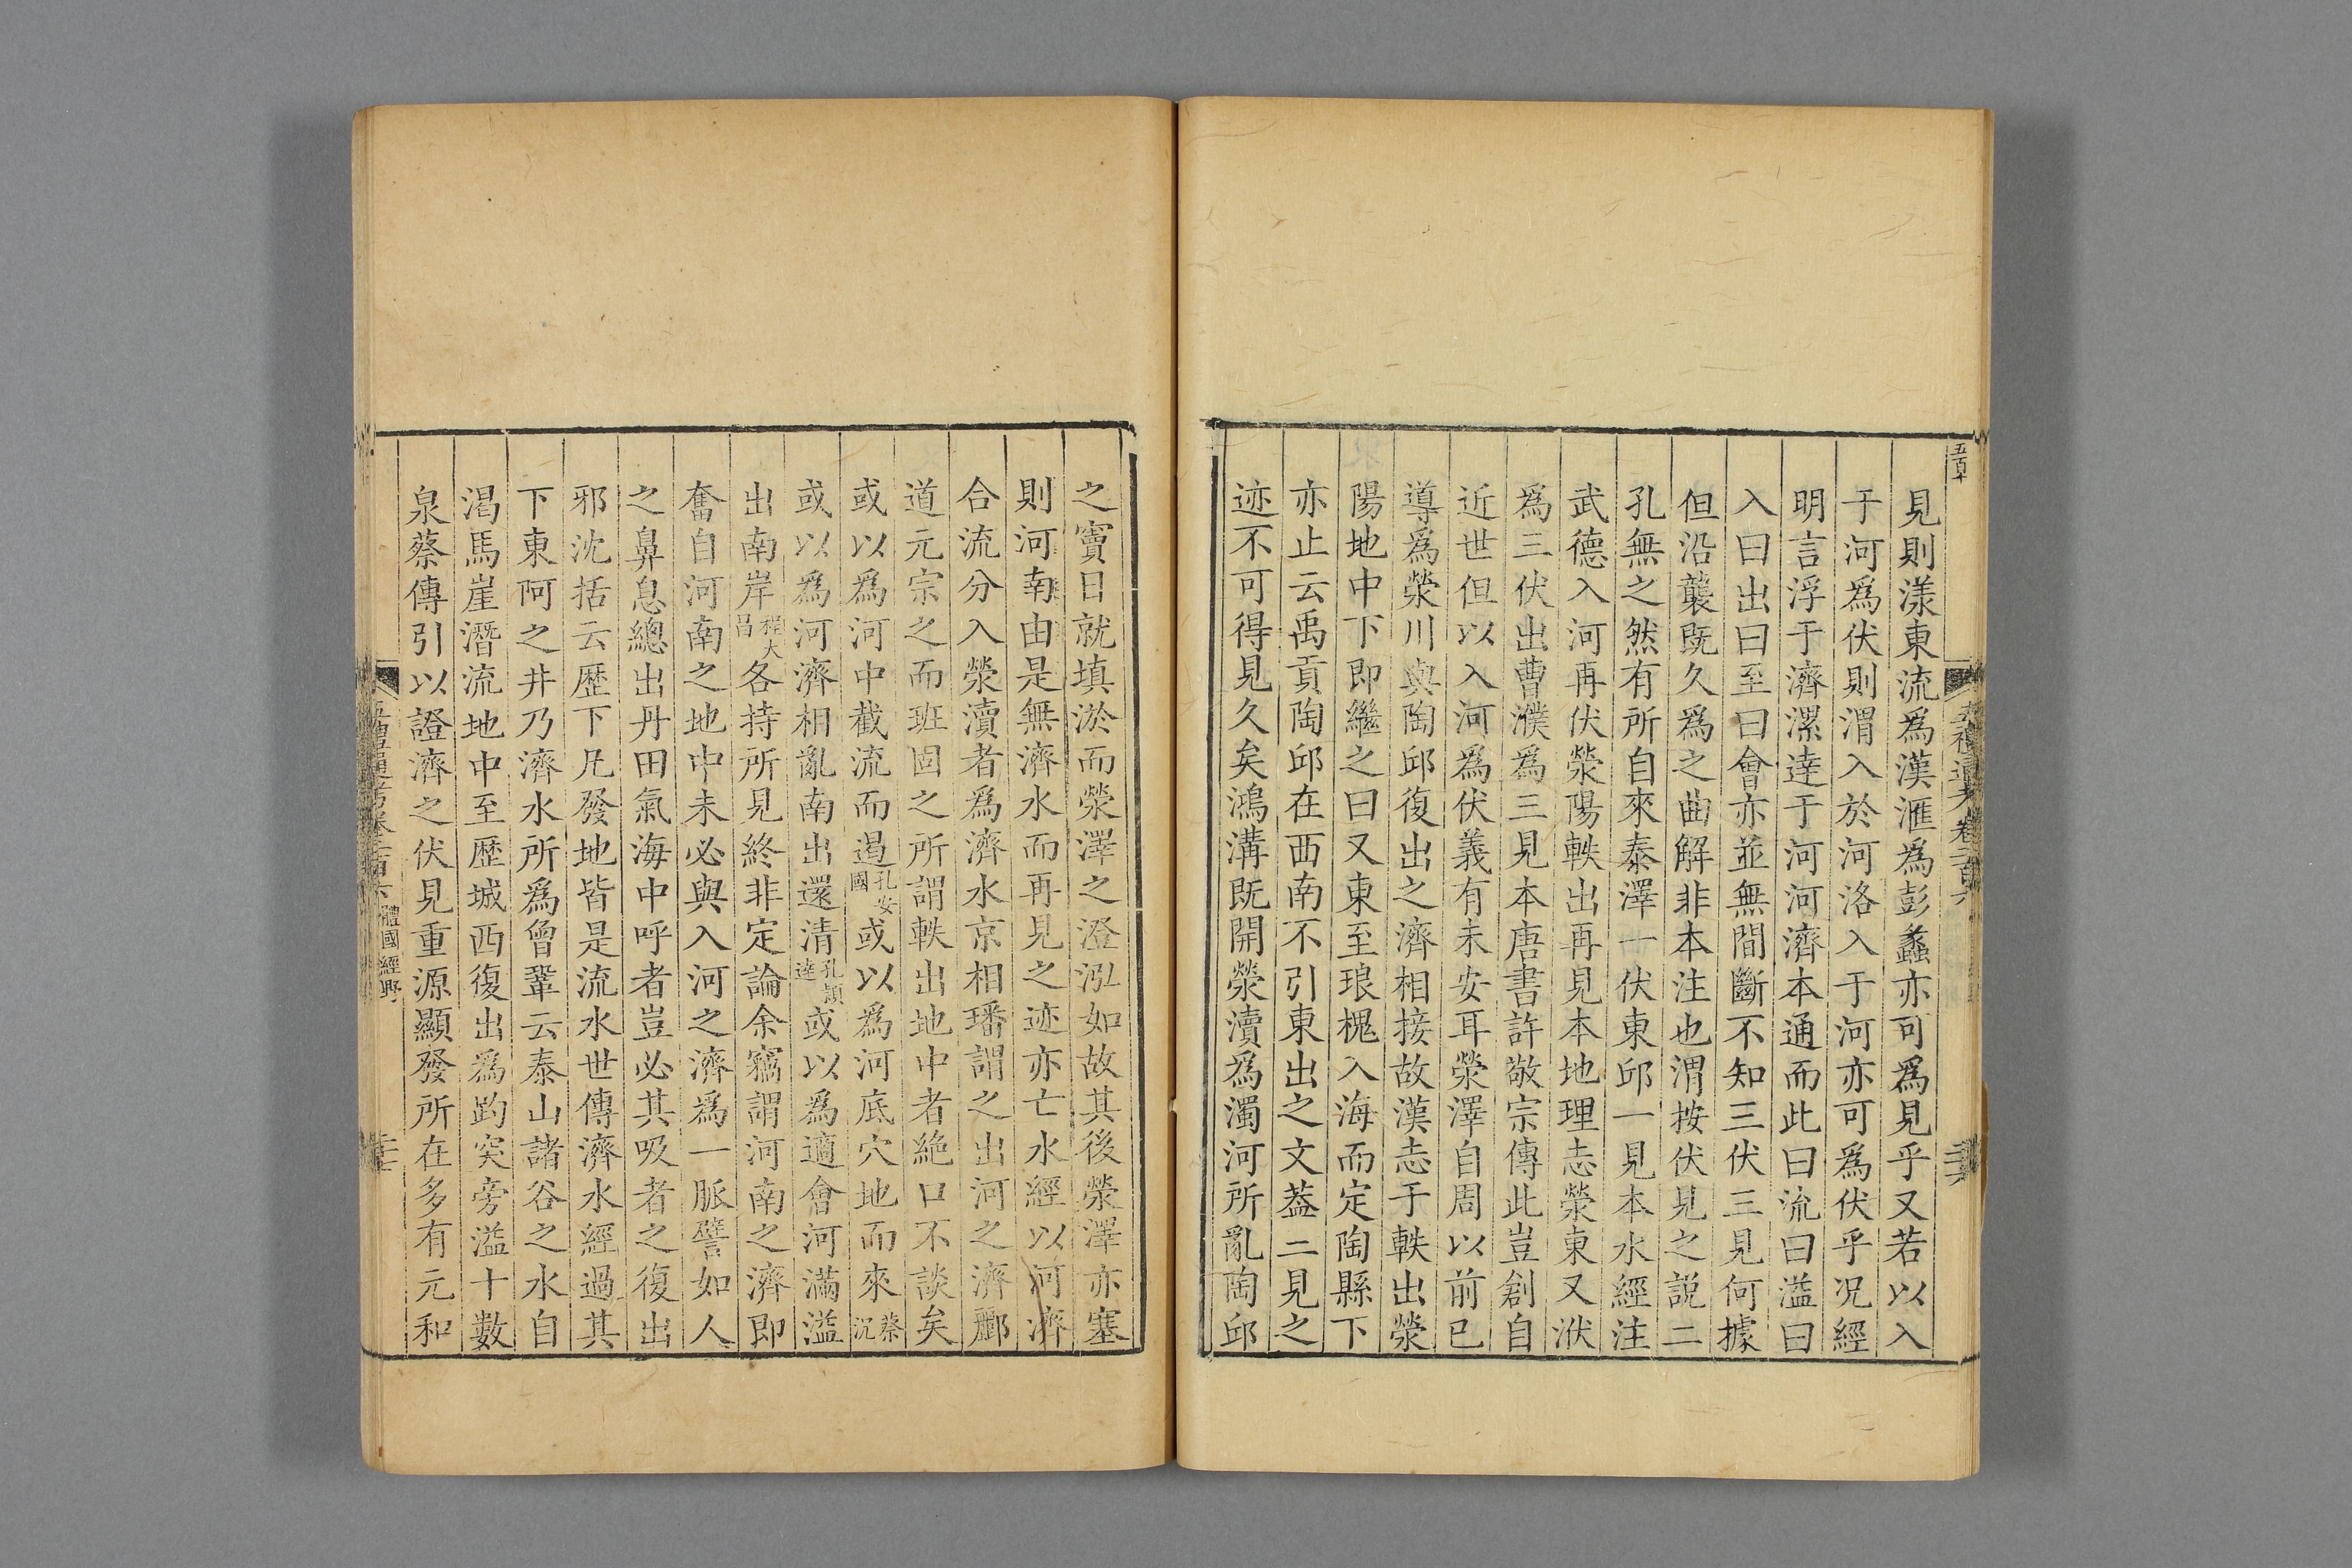 見則漾東流為漢滙為彭蠡亦可為見乎又若以入
于河為伏則渭入於河洛入于河亦可為伏乎况經
明言浮于濟漯達于河河濟本通而此曰流曰溢曰
入曰出曰至曰會亦並無間斷不知三伏三見何據
但沿襲既久為之曲解非本注也渭按伏見之説二
孔無之然有所自來泰澤一伏東邱一見本水經注
武德入河再伏滎陽軼出再見本地理志滎東又洑
為三伏出曹濮為三見本唐書許敬宗傳此豈創自
近世但以入河為伏義有未安耳滎澤自周以前已
導為滎川與陶邱復出之濟相接故漢志于軼出滎
陽地中下即繼之曰又東至琅槐入海而定陶縣下
亦止云禹貢陶邱在西南不引東出之文葢二見之
迹不可得見久矣鴻溝既開滎瀆為濁河所亂陶邱
之竇日就填淤而滎澤之澄泓如故其後滎澤亦塞
則河南由是無濟水而再見之迹亦亡水經以河濟
合流分入滎瀆者為濟水京相璠謂之出河之濟酈
道元宗之而班固之所謂軼出地中者絶口不談矣
或以為河中截流而過孔安國或以為河底穴地而來蔡沉
或以為河濟相亂南出還清孔頴達或以為適會河滿溢
出南岸程大昌各持所見終非定論余竊謂河南之濟即
奮自河南之地中未必與入河之濟為一脈譬如人
之鼻息總出丹田氣海中呼者豈必其吸者之復出
邪沈括云歴下凡發地皆是流水世傳濟水經過其
下東阿之井乃濟水所為曾鞏云泰山諸谷之水自
渴馬崖潛流地中至歴城西復出為趵突旁溢十數
泉蔡傳引以證濟之伏見重源顯發所在多有元和
體國經野